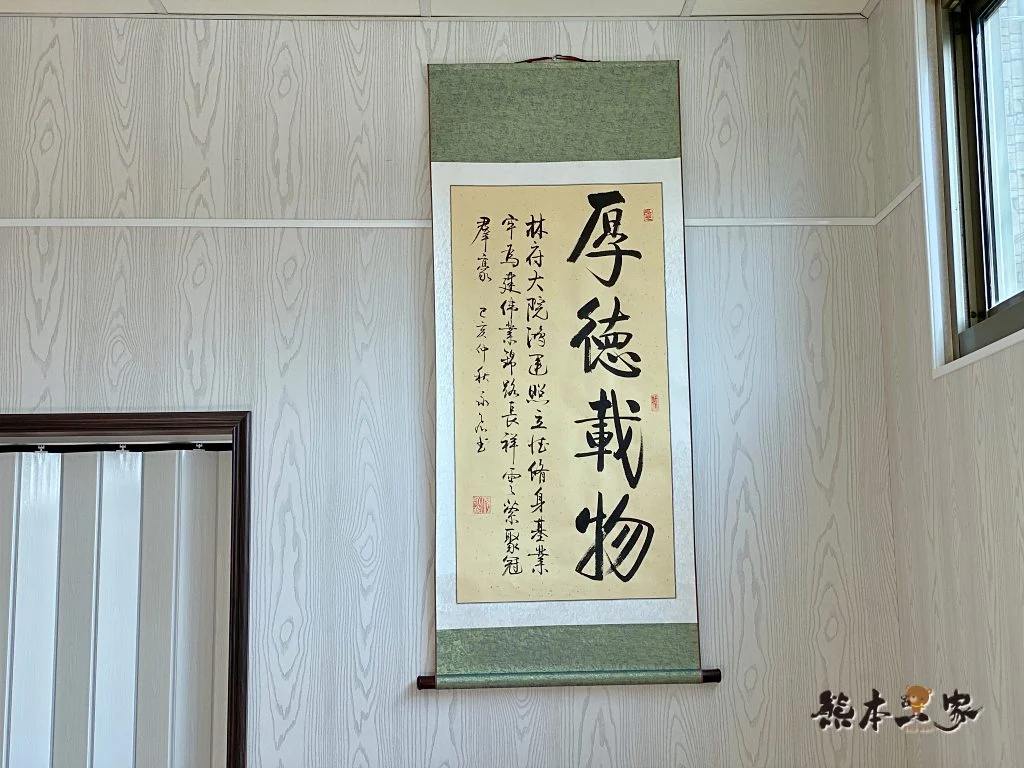 厚德載物
林府大院鴻運照立德脩身基業
牢為建偉業錦路長祥雲縈聚冠
羣豪 己亥仲秋永  书
熊本一家